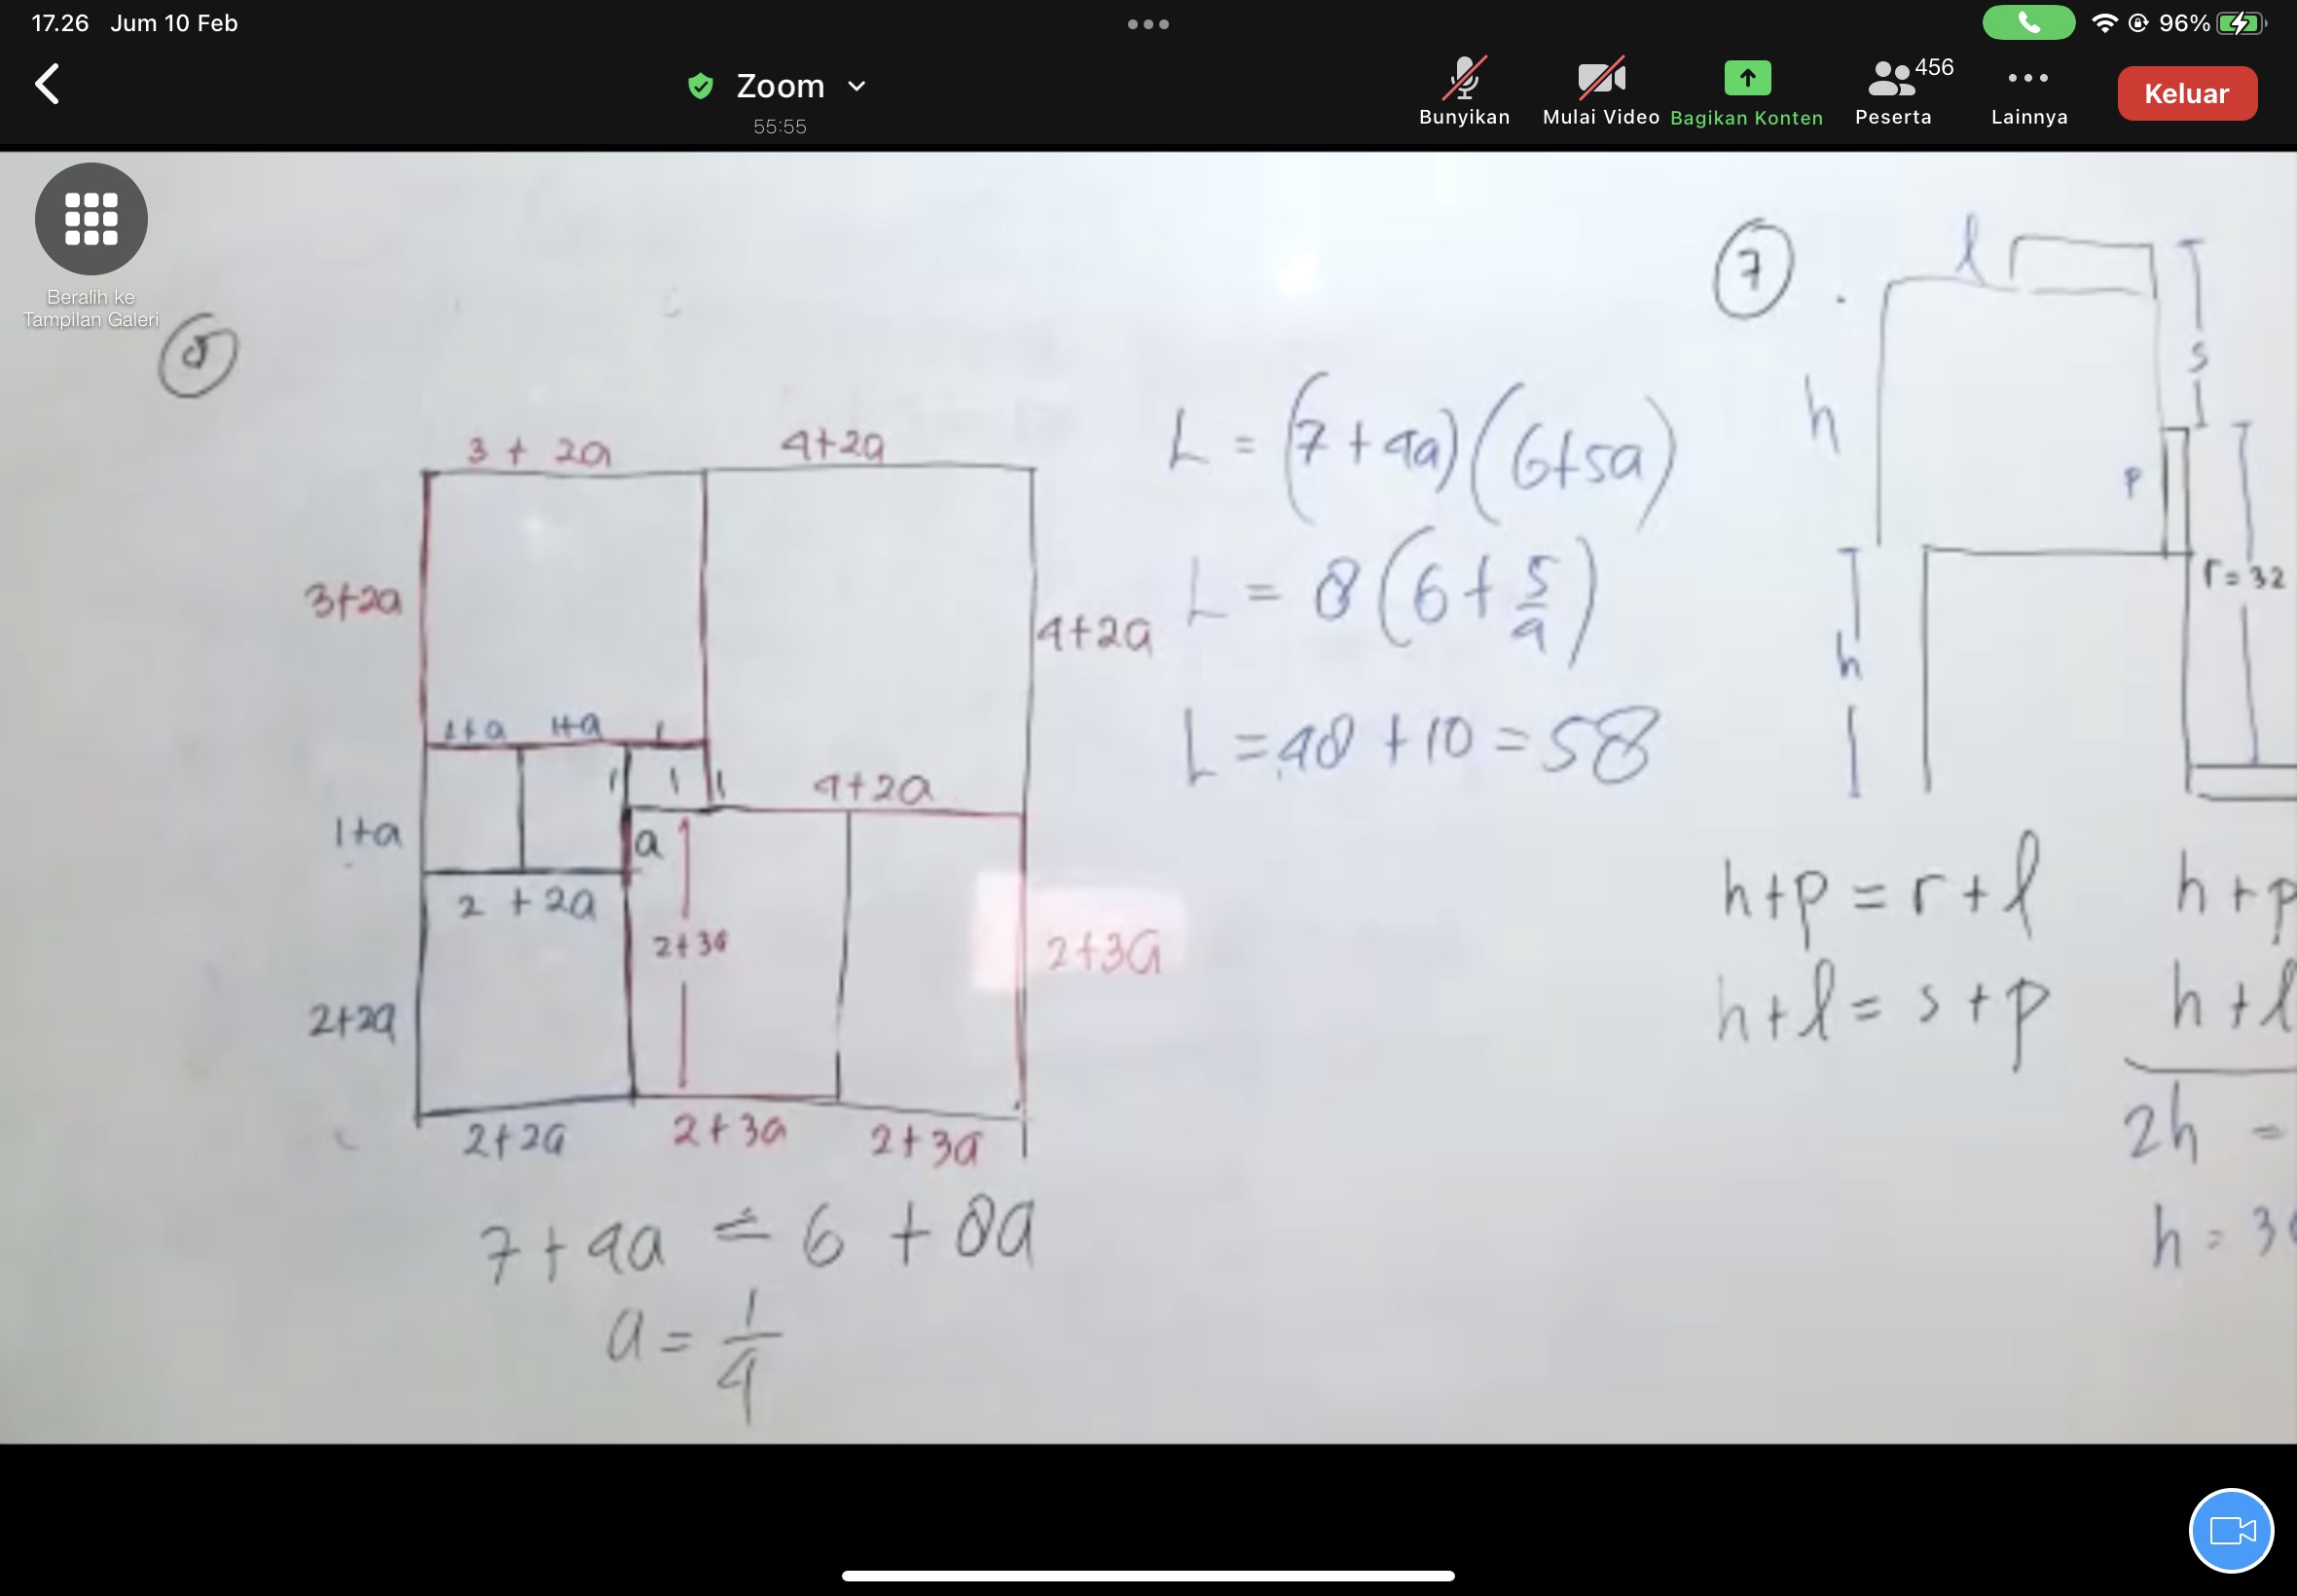 17.26 Jum 10 Feb
96%
Zoom
55:55
Bunyikan
Mulai Video
Bagikan Konten
456
Peserta
Lainnya
Keluar
Beralih ke
Tampilan Galeri
3 + 2a
4+2a
3+2a
4+2a
1+a 1+a 1
1 1 1
4+2a
1+a
a
2 + 2a
2+3a
2+3a
2+2a
2+2a
2+3a
2+3a
7 + 4a = 6 + 8a
a = 1/4
L = (7 + 4a)(6+5a)
L = 8(6 + 5/4)
L = 48 + 10 = 58
7
l
s
h
p
r = 32
h
h+p = r+l
h+l = s+p
h+p
h+l
2h =
h = 3